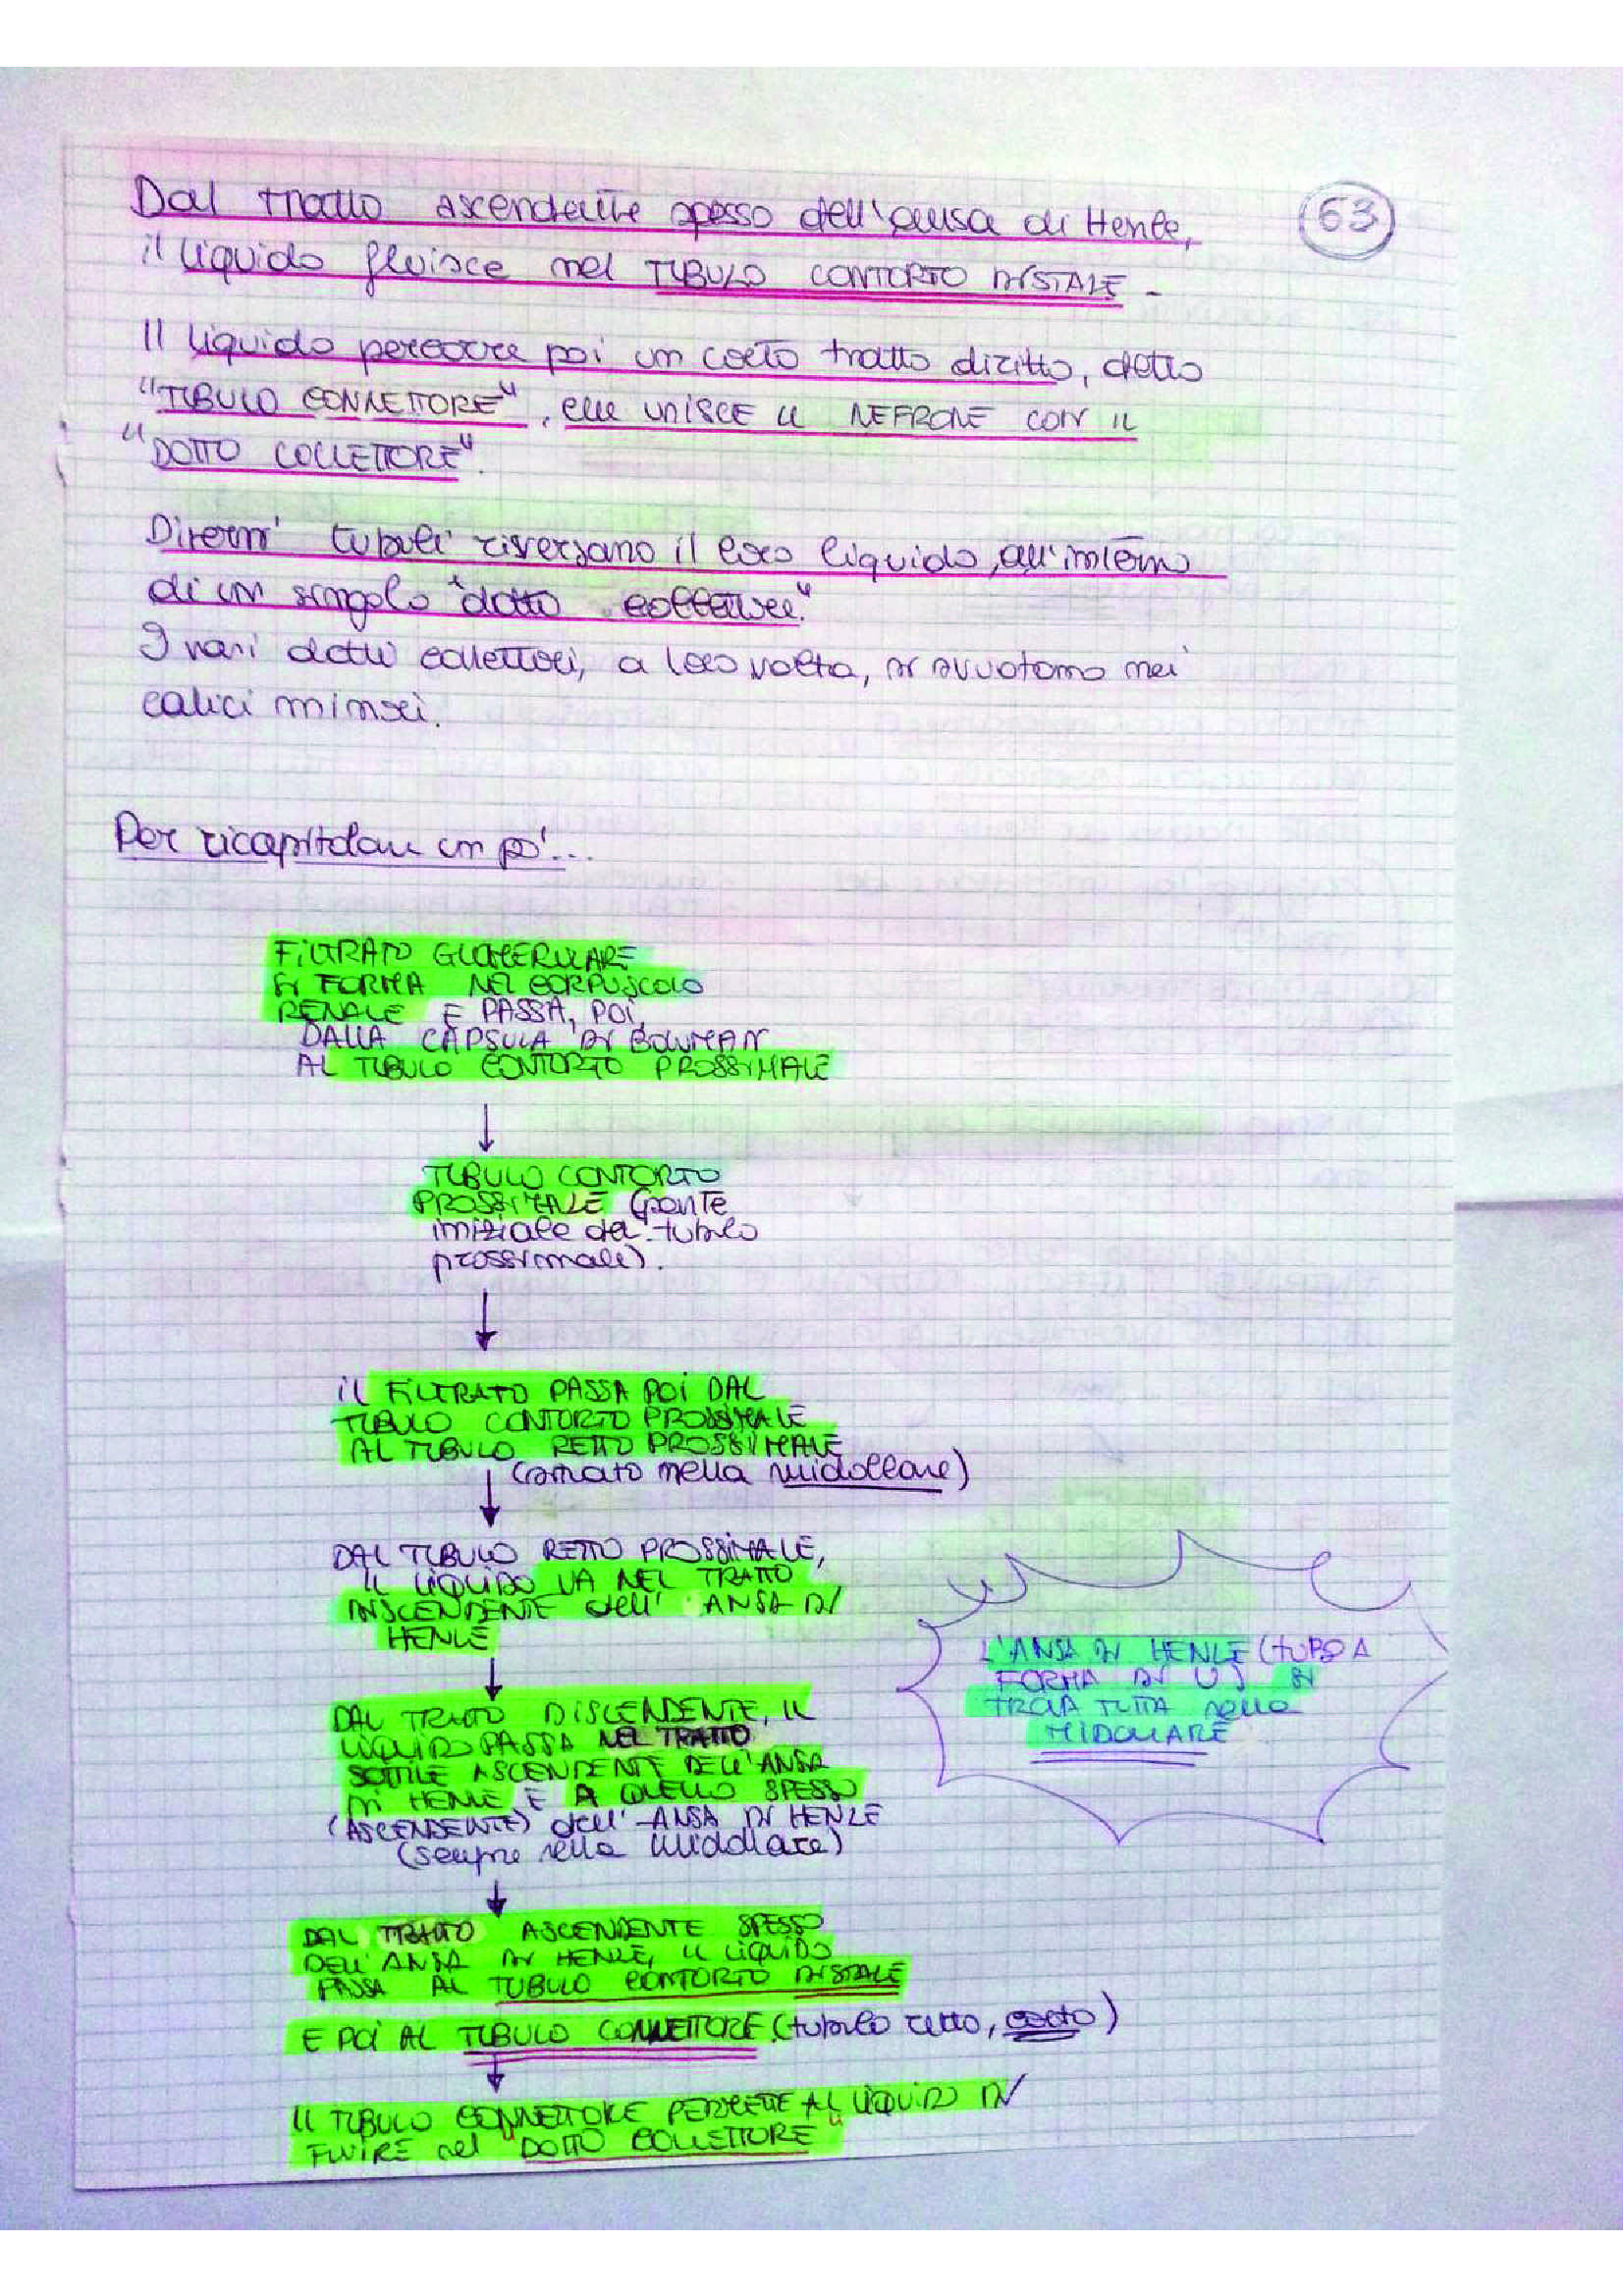 Dal tratto ascendente spesso dell'ansa di Henle,
63
il liquido fluisce nel TUBULO CONTORTO DISTALE -
Il liquido percorre poi un corto tratto diritto, detto
"TUBULO CONNETTORE", che UNISCE IL NEFRONE CON IL
"DOTTO COLLETTORE".
Diversi tubuli riversano il loro liquido, all'interno
di un singolo "dotto collettore".
I vari dotti collettori, a loro volta, si svuotano nei
calici minori.
Per ricapitolare un po'...
FILTRATO GLOMERULARE
SI FORMA NEL CORPUSCOLO
RENALE E PASSA, POI,
DALLA CAPSULA DI BOWMAN
AL TUBULO CONTORTO PROSSIMALE
↓
TUBULO CONTORTO
PROSSIMALE (parte
iniziale del tubulo
prossimale).
↓
IL FILTRATO PASSA POI DAL
TUBULO CONTORTO PROSSIMALE
AL TUBULO RETTO PROSSIMALE
(situato nella midollare)
↓
DAL TUBULO RETTO PROSSIMALE,
IL LIQUIDO VA NEL TRATTO
DISCENDENTE dell' ANSA DI
HENLE
↓
DAL TRATTO DISCENDENTE, IL
LIQUIDO PASSA NEL TRATTO
SOTTILE ASCENDENTE DELL'ANSA
DI HENLE E A QUELLO SPESSO
(ASCENDENTE) dell' ANSA DI HENLE
(sempre nella midollare)
L'ANSA DI HENLE (TUBO A
FORMA DI U) SI
TROVA TUTTA nella
MIDOLLARE
↓
DAL TRATTO ASCENDENTE SPESSO
DELL'ANSA DI HENLE, IL LIQUIDO
PASSA AL TUBULO CONTORTO DISTALE
E POI AL TUBULO CONNETTORE (tubulo retto, corto)
↓
IL TUBULO CONNETTORE PERMETTE AL LIQUIDO DI
FLUIRE nel "DOTTO COLLETTORE"